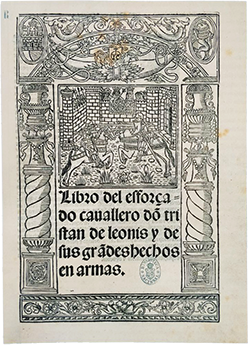 Libro del esforça
do cauallero dõ tri
stan de leonis y de
sus grãdes hechos
en armas.